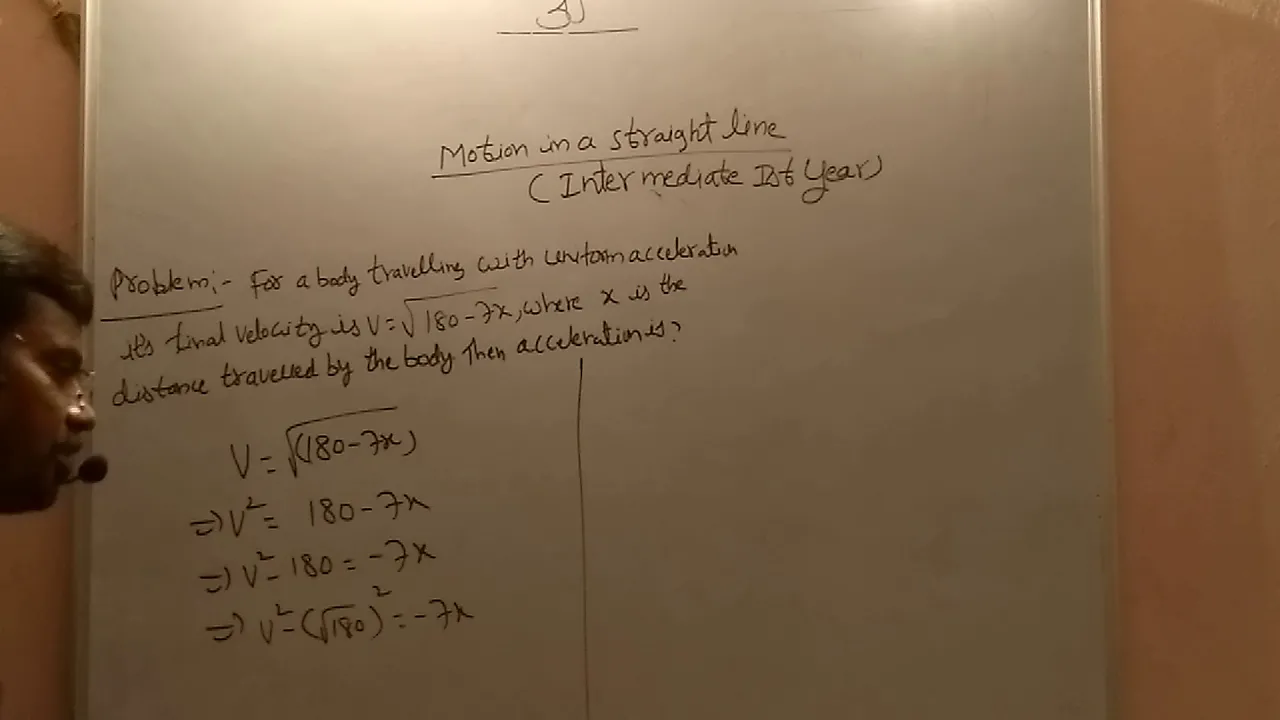 Motion in a straight line
(Intermediate Ist Year)
Problem:- For a body travelling with uniform acceleration
it's final velocity is V = √180-7x, where x is the
distance travelled by the body Then acceleration is?
V = √(180-7x)
=) V² = 180-7x
=) V² - 180 = -7x
=) V² - (√180)² = -7x